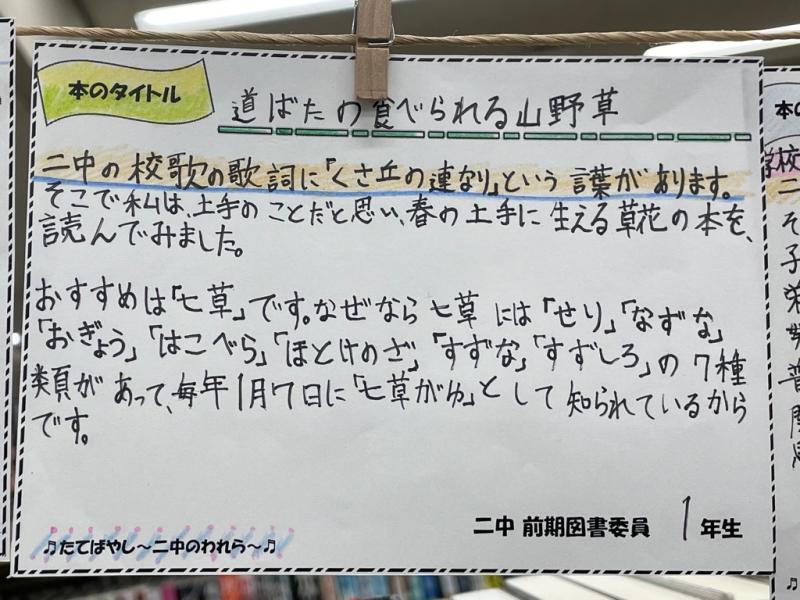 本のタイトル
道ばたの食べられる山野草
二中の校歌の歌詞に「くさ丘の連なり」という言葉があります。
そこで私は、土手のことだと思い、春の土手に生える草花の本を、
読んでみました。
おすすめは「七草」です。なぜなら七草には「せり」「なずな」
「おぎょう」「はこべら」「ほとけのざ」「すずな」「すずしろ」の7種
類があって、毎年1月7日に「七草がゆ」として知られているから
です。
二中 前期図書委員 1年生
♫たてばやし～二中のわれら～♫
本の
学校
二
そ
子